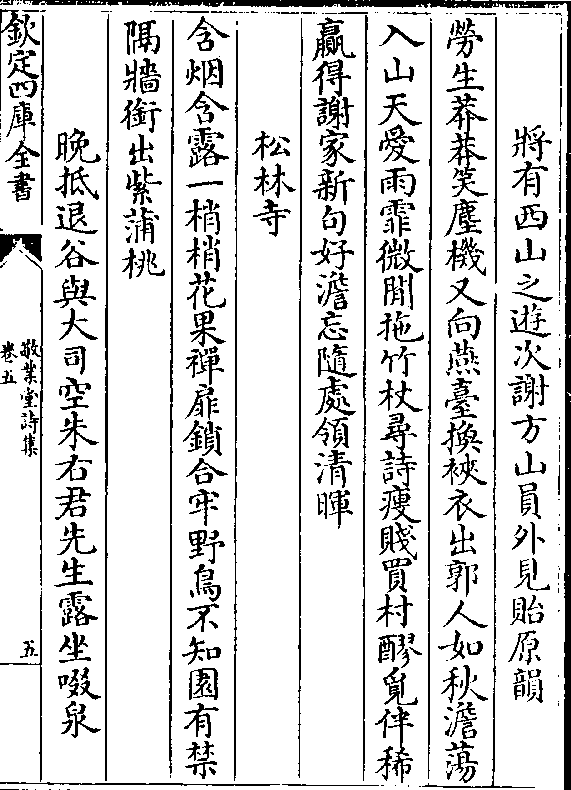 將有西山之遊次謝方山員外見貽原韻
勞生莽莽笑塵機又向燕臺換裌衣出郭人如秋澹蕩
入山天愛雨霏微閒拖竹杖尋詩瘦賤買村醪覓伴稀
贏得謝家新句好澹忘隨處領清暉
松林寺
含烟含露一梢梢花果禪扉鎖合牢野鳥不知園有禁
隔牆銜出紫蒲桃
晚抵退谷與大司空朱右君先生露坐啜泉
欽定四庫全書
敬業堂詩集
卷五
五